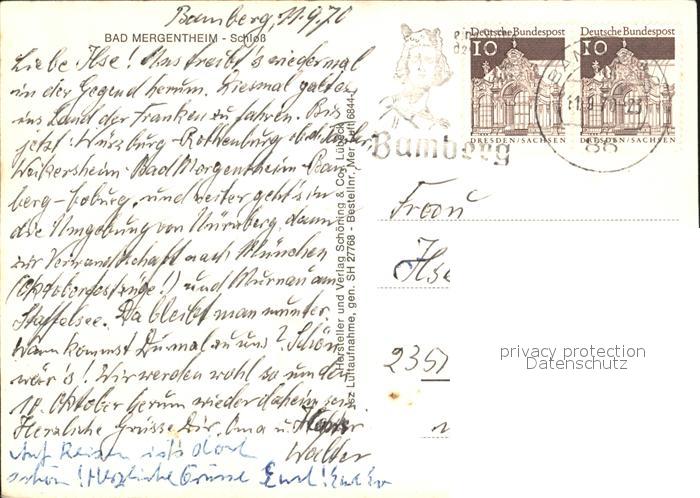 Bamberg, 11.9.70
BAD MERGENTHEIM - Schloß
Liebe Ilse! Uns treibt's wiedermal
in der Gegend herum. Diesmal galt es,
ins Land der Franken zu fahren. Bis
jetzt: Würzburg-Rothenburg ob d. Tauber
Weikersheim-Bad Mergentheim-Bam-
berg-Coburg, und weiter geht's in
die Umgebung von Nürnberg, dann
zur Verwandtschaft nach München
(Oktoberfestzüge!) und Murnau am
Staffelsee. Da bleibt man munter.
Wann kommst Du mal zu uns? Schön
wär's! Wir werden wohl so um den
10. Oktober herum wieder daheim sein.
Herzliche Grüsse Dir, Oma u.
Walter
Auf Reisen ist's doch
schön! Herzliche Grüsse
Hersteller und Verlag Schöning & Co., Lübeck
Luftaufnahme, gen. SH 27768 - Bestellnr. Mer
Deutsche Bundespost
10
DRESDEN/SACHSEN
Deutsche Bundespost
10
DRESDEN/SACHSEN
Bamberg
Frau
Ilse
2351
privacy protection
Datenschutz